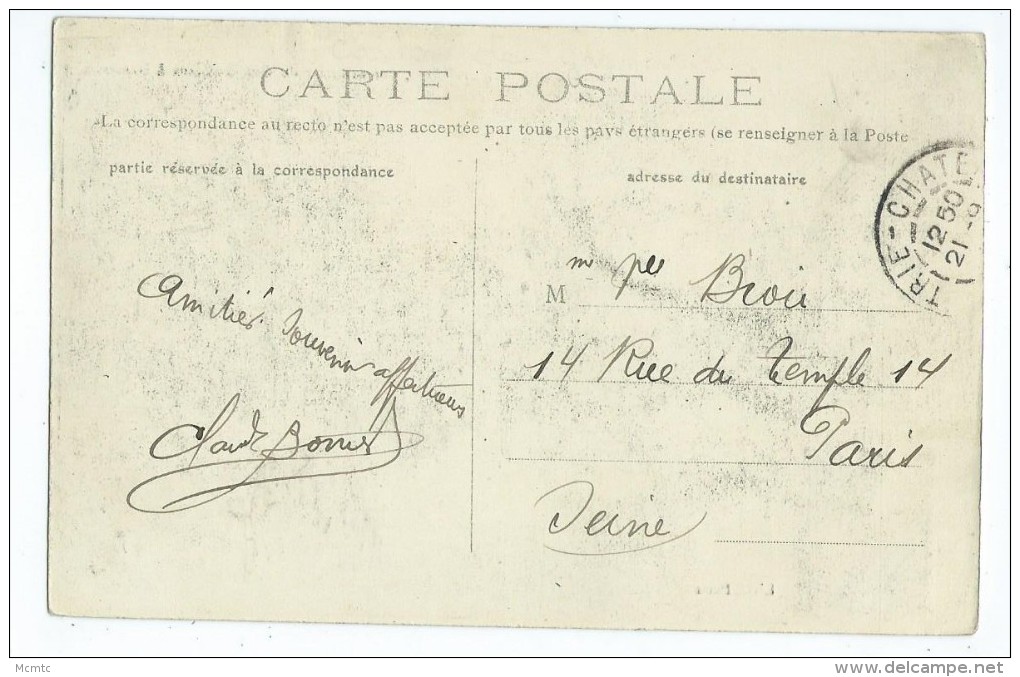 CARTE POSTALE
La correspondance au recto n'est pas acceptée par tous les pays étrangers (se renseigner à la Poste
partie réservée à la correspondance
adresse du destinataire
TRIE-CHATE
12 50
21 -9
Amitiés Souvenir affectueux
M
14 Rue du Temple 14
Paris
Seine
Mcmtc
www.delcampe.net